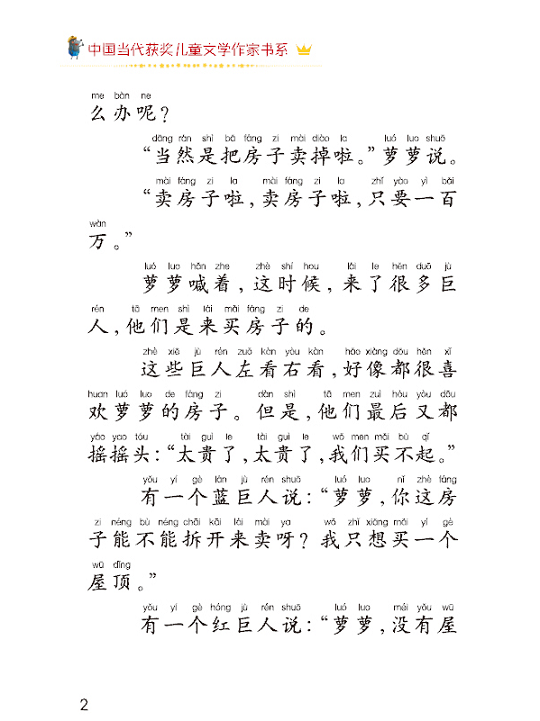 中国当代获奖儿童文学作家书系
me bàn ne
么办呢？
dāng rán shì bǎ fáng zi mài diào la luó luo shuō
“当然是把房子卖掉啦。”萝萝说。
mài fáng zi la mài fáng zi la zhǐ yào yì bǎi
“卖房子啦，卖房子啦，只要一百
wàn
万。”
luó luo hǎn zhe zhè shí hou lái le hěn duō jù
萝萝喊着，这时候，来了很多巨
rén tā men shì lái mǎi fáng zi de
人，他们是来买房子的。
zhè xiē jù rén zuǒ kàn yòu kàn hǎo xiàng dōu hěn xǐ
这些巨人左看右看，好像都很喜
huan luó luo de fáng zi dàn shì tā men zuì hòu yòu dōu
欢萝萝的房子。但是，他们最后又都
yáo yao tóu tài guì le tài guì le wǒ men mǎi bù qǐ
摇摇头：“太贵了，太贵了，我们买不起。”
yǒu yí gè lán jù rén shuō luó luo nǐ zhè fáng
有一个蓝巨人说：“萝萝，你这房
zi néng bù néng chāi kāi lái mài ya wǒ zhǐ xiǎng mǎi yí gè
子能不能拆开来卖呀？我只想买一个
wū dǐng
屋顶。”
yǒu yí gè hóng jù rén shuō luó luo méi yǒu wū
有一个红巨人说：“萝萝，没有屋
2